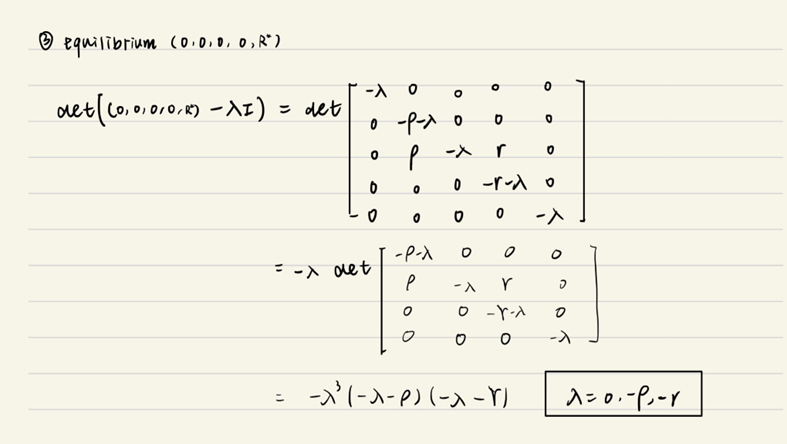 ③ equilibrium (0,0,0,0,R*)
det((0,0,0,0,R*) -λI) = det [ -λ 0 0 0 0
0 -ρ-λ 0 0 0
0 ρ -λ r 0
0 0 0 -r-λ 0
0 0 0 0 -λ ]
= -λ det [ -ρ-λ 0 0 0
ρ -λ r 0
0 0 -r-λ 0
0 0 0 -λ ]
= -λ³(-λ-ρ)(-λ-r) λ=0,-ρ,-r